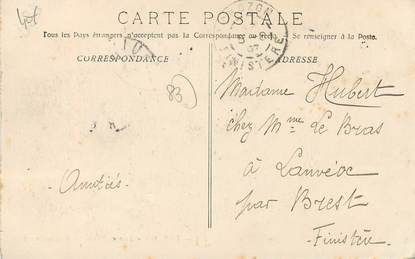 CARTE POSTALE
Tous les Pays étrangers n'acceptent pas la Correspondance au Recto. Se renseigner à la Poste.
CORRESPONDANCE
ADRESSE
FINISTERE
83
Amitiés
Madame Hubert
chez Mme Le Bras
à Lanvéoc
par Brest
Finistère